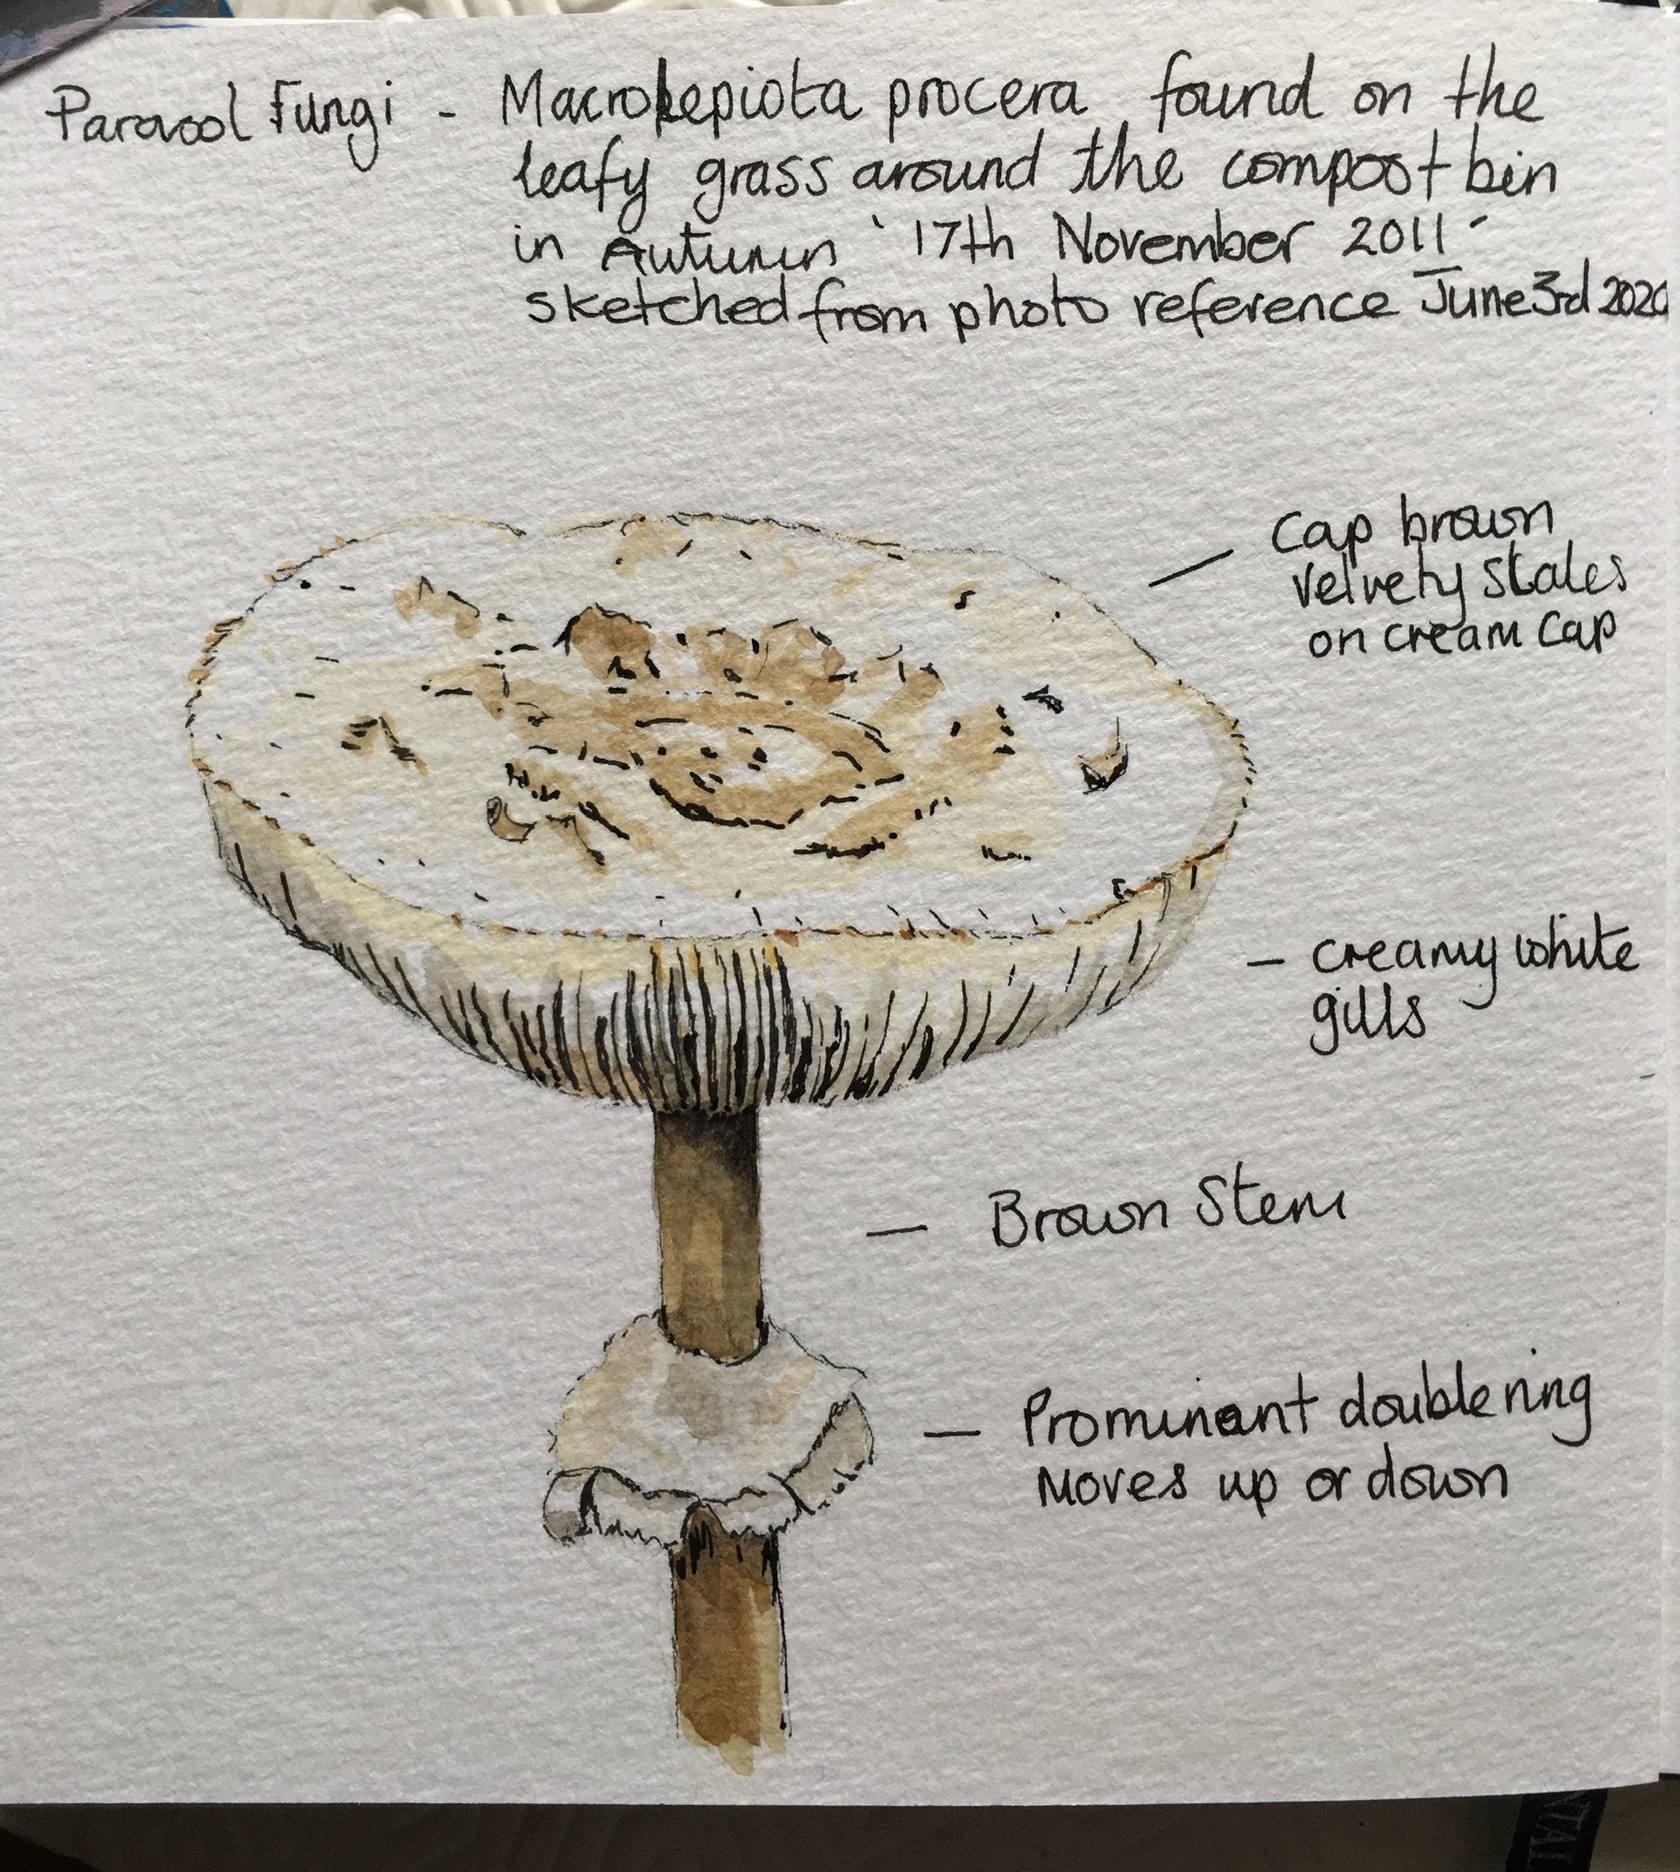 Paravool Fungi - Macrolepiota procera found on the
leafy grass around the compost bin
in Autumn '17th November 2011'
sketched from photo reference June 3rd 2020
Cap brown
velvety Scales
on cream Cap
creamy white
gills
Brown Stem
Prominant double ring
Moves up or down